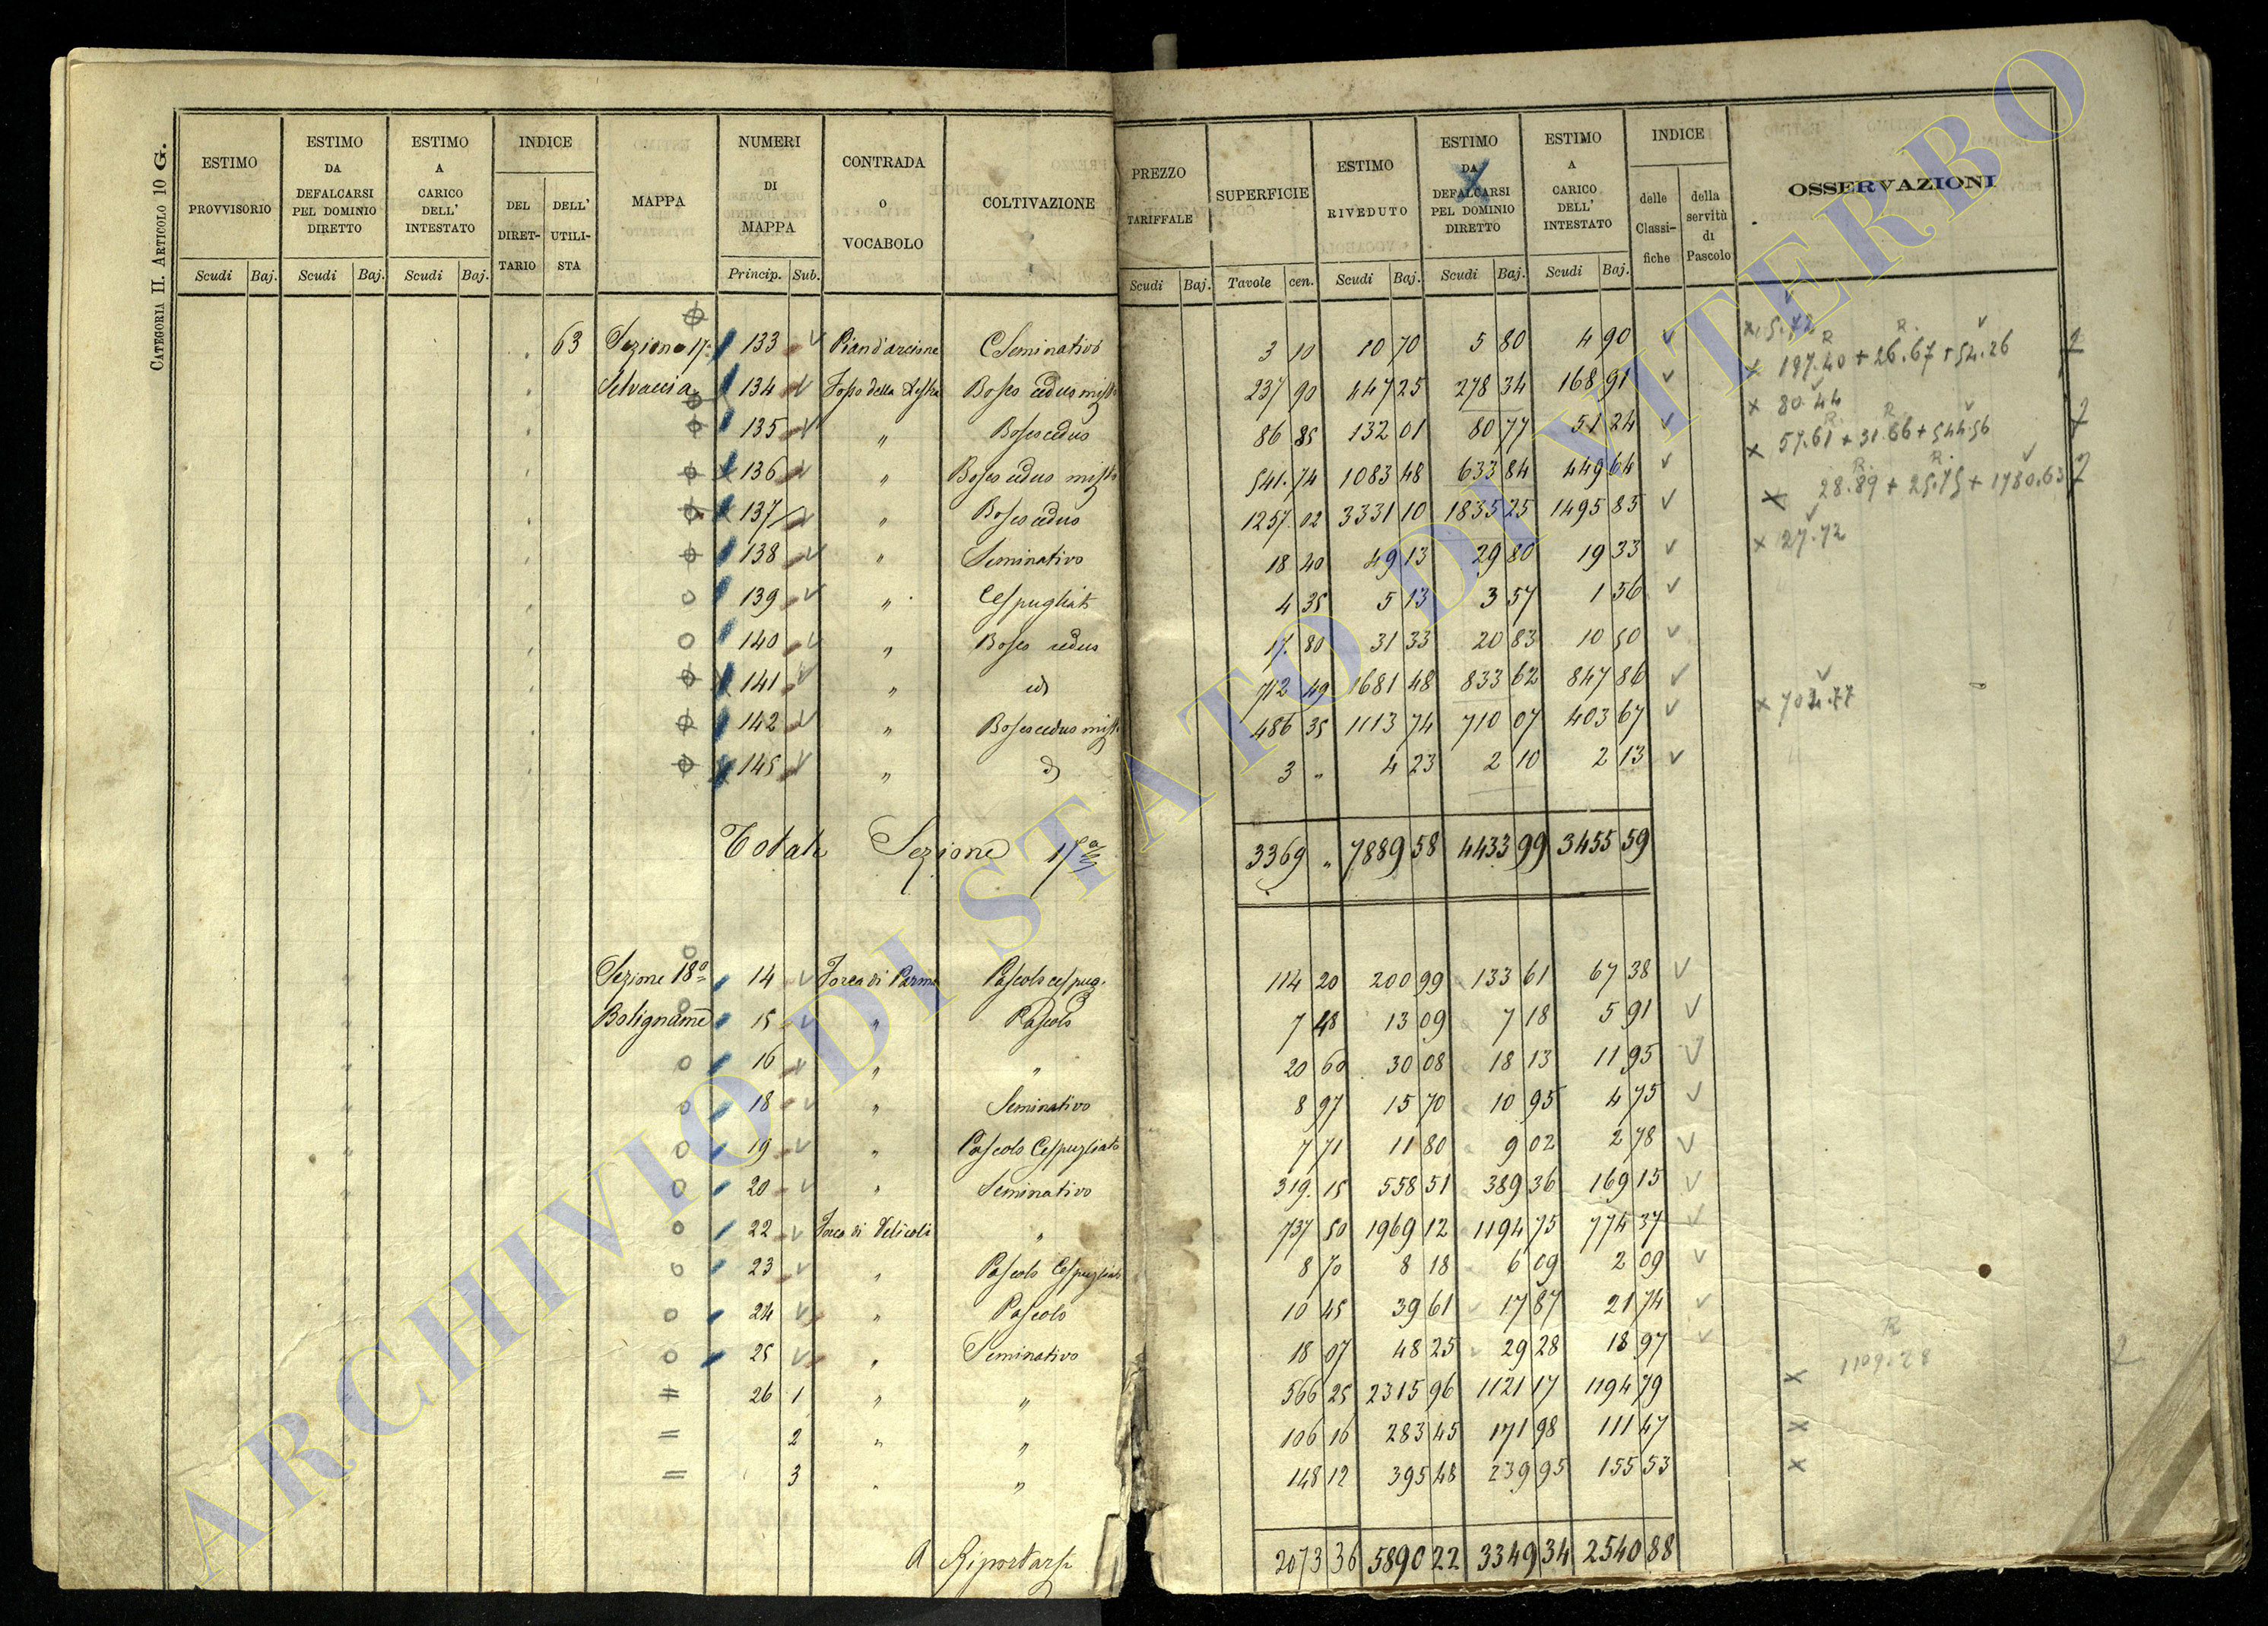 CATEGORIA II. ARTICOLO 10 G.
ESTIMO PROVVISORIO Scudi Baj.
ESTIMO DA DEFALCARSI PEL DOMINIO DIRETTO Scudi Baj.
ESTIMO A CARICO DELL' INTESTATO Scudi Baj.
INDICE DEL DIRET-TARIO DELL' UTILI-STA
MAPPA
NUMERI DI MAPPA Princip. Sub.
CONTRADA O VOCABOLO
COLTIVAZIONE
PREZZO TARIFFALE Scudi Baj.
SUPERFICIE Tavole cen.
ESTIMO RIVEDUTO Scudi Baj.
ESTIMO DA DEFALCARSI PEL DOMINIO DIRETTO Scudi Baj.
ESTIMO A CARICO DELL' INTESTATO Scudi Baj.
INDICE delle Classi-fiche della servitù di Pascolo
OSSERVAZIONI
63 Sezione 17ª 133 Pian d'arcione Seminativo 3 10 10 70 5 80 4 90 x 5.72
Selvaccia 134 Fosso della Bosco ceduo misto 237 90 447 25 278 34 168 91 x 187.40 + 26.67 + 54.26
135 " Bosco ceduo 86 85 132 01 80 77 51 24 x 80.44
136 " Bosco ceduo misto 541.74 1083 48 633 84 449 64 x 57.61 + 31.66 + 544.56
137 " Bosco ceduo 1257.02 3331 10 1835 25 1495 85 x 28.89 + 25.75 + 1780.63
138 " Seminativo 18 40 49 13 29 80 19 33 x 27.72
139 " Cespugliato 4 35 5 13 3 57 1 56
140 " Bosco ceduo 17.80 31 33 20 83 10 50
141 " id 712 49 1681 48 833 62 847 86
142 " Bosco ceduo misto 486 35 1113 74 710 07 403 67 x 704.77
145 " d 3 " 4 23 2 10 2 13
Totale Sezione 17ª 3369 " 7889 58 4433 99 3455 59
Sezione 18ª 14 Forca di Parma Pascolo cespug. 114 20 200 99 133 61 67 38
Boligname 15 " Pascolo 7 48 13 09 7 18 5 91
16 " " 20 60 30 08 18 13 11 95
18 " Seminativo 8 97 15 70 10 95 4 75
19 " Pascolo Cespugliato 7 71 11 80 9 02 2 78
20 " Seminativo 319.15 558 51 389 36 169 15
22 Forca di Velicoli " 737 50 1969 12 1194 75 774 37
23 " Pascolo Cespugliato 8 70 8 18 6 09 2 09
24 " Pascolo 10 45 39 61 17 87 21 74
25 " Seminativo 18 07 48 25 29 28 18 97
26 1 " " 566 25 2315 96 1121 17 1194 79 x 1109.28
2 " " 106 16 283 45 171 98 111 47 x
3 " " 148 12 395 48 239 95 155 53 x
A Riportarsi 2073 36 5890 22 3349 34 2540 88
ARCHIVIO DI STATO DI VITERBO